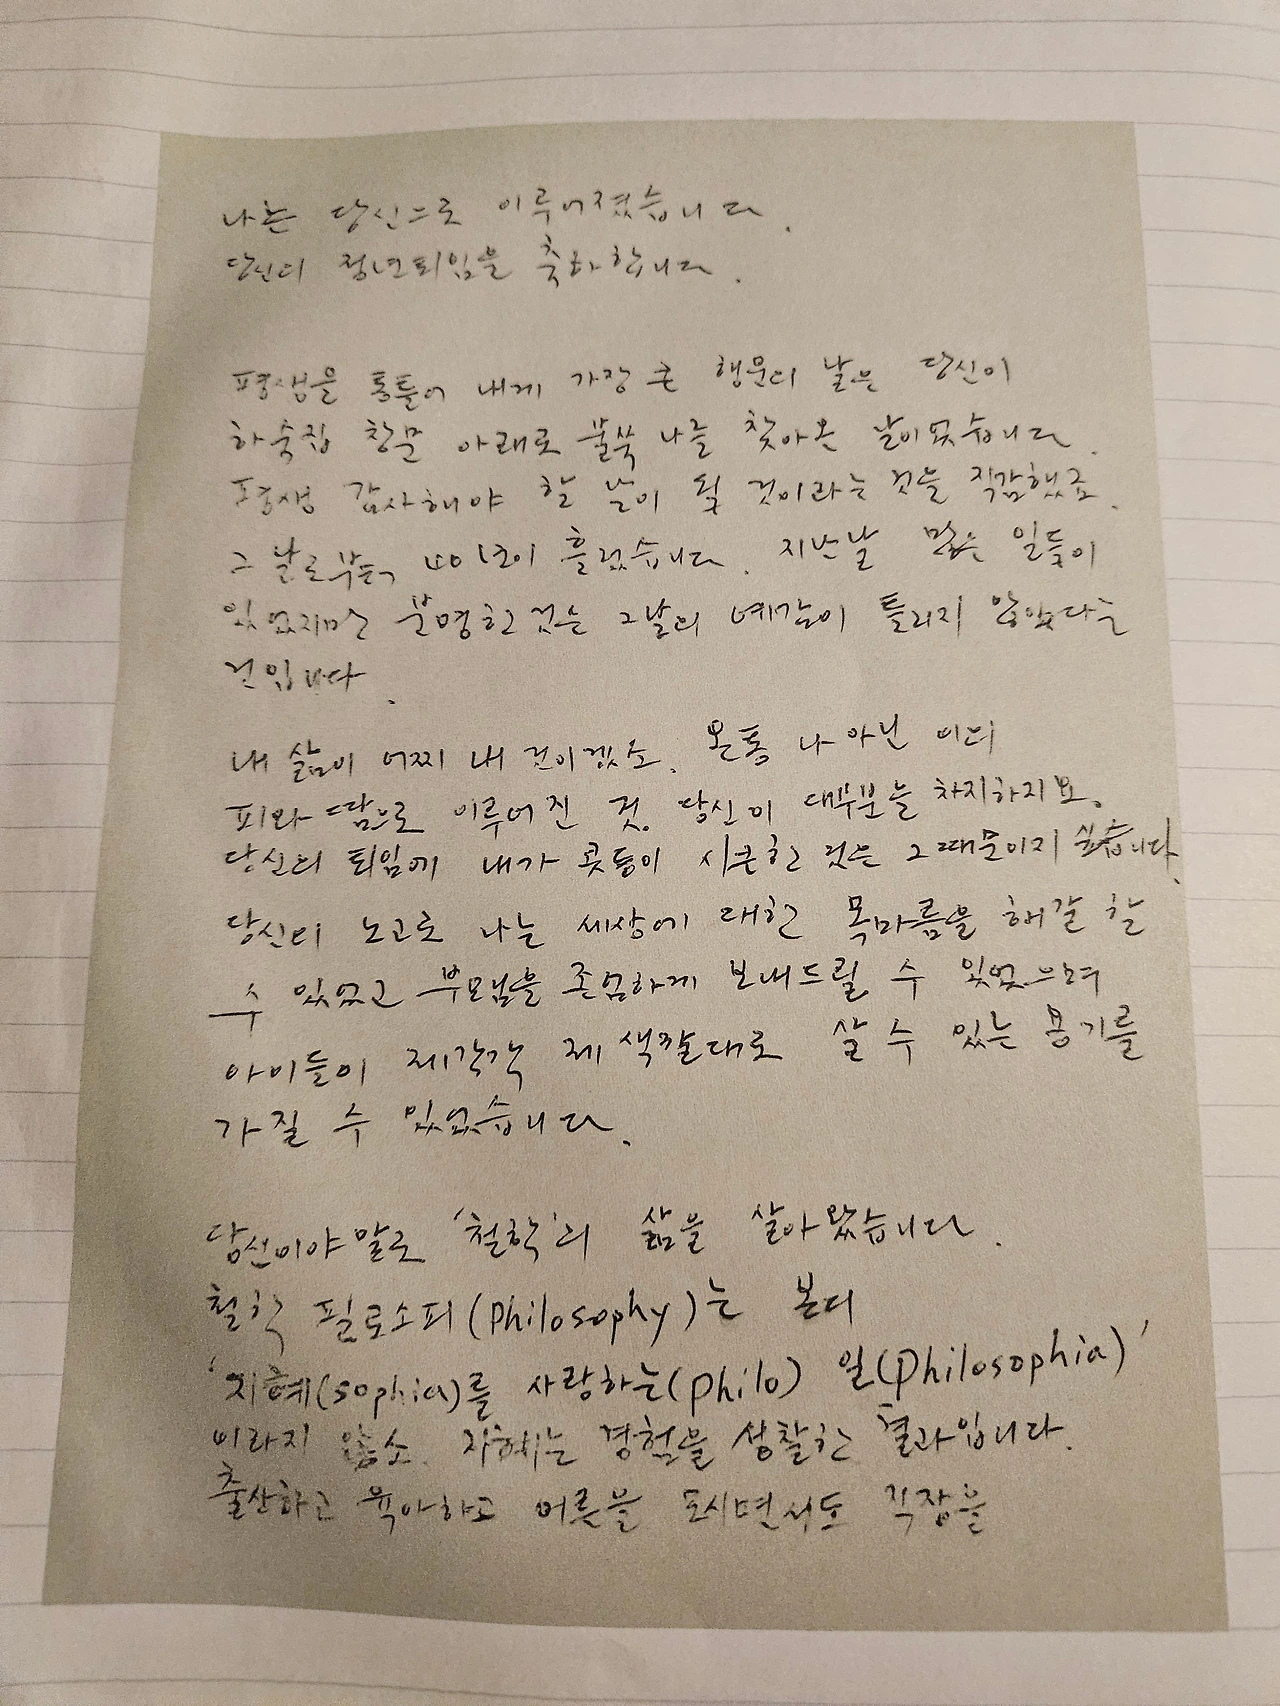 나는 당신으로 이루어졌습니다.
당신의 정년퇴임을 축하합니다.
평생을 통틀어 내게 가장 큰 행운의 날은 당신이
하숙집 창문 아래로 불쑥 나를 찾아온 날이었습니다.
평생 감사해야 할 날이 될 것이라는 것을 직감했죠.
그 날로부터 40년이 흘렀습니다. 지난날 많은 일들이
있었지만 분명한 것은 그날의 예감이 틀리지 않았다는
것입니다.
내 삶이 어찌 내 것이겠소. 온통 나 아닌 이의
피와 땀으로 이루어진 것. 당신이 대부분을 차지하지요.
당신의 퇴임에 내가 콧등이 시큰한 것은 그 때문이지 싶습니다.
당신의 노고로 나는 세상에 대한 목마름을 해갈 할
수 있었고 부모님을 존엄하게 보내드릴 수 있었으며
아이들이 제각각 제 색깔대로 살 수 있는 용기를
가질 수 있었습니다.
당신이야말로 '철학'의 삶을 살아왔습니다.
철학 필로소피(Philosophy)는 본디
'지혜(sophia)를 사랑하는(philo) 일(philosophia)'
이라지 않소. 지혜는 경험을 성찰한 결과입니다.
출산하고 육아하고 어른을 모시면서도 직장을